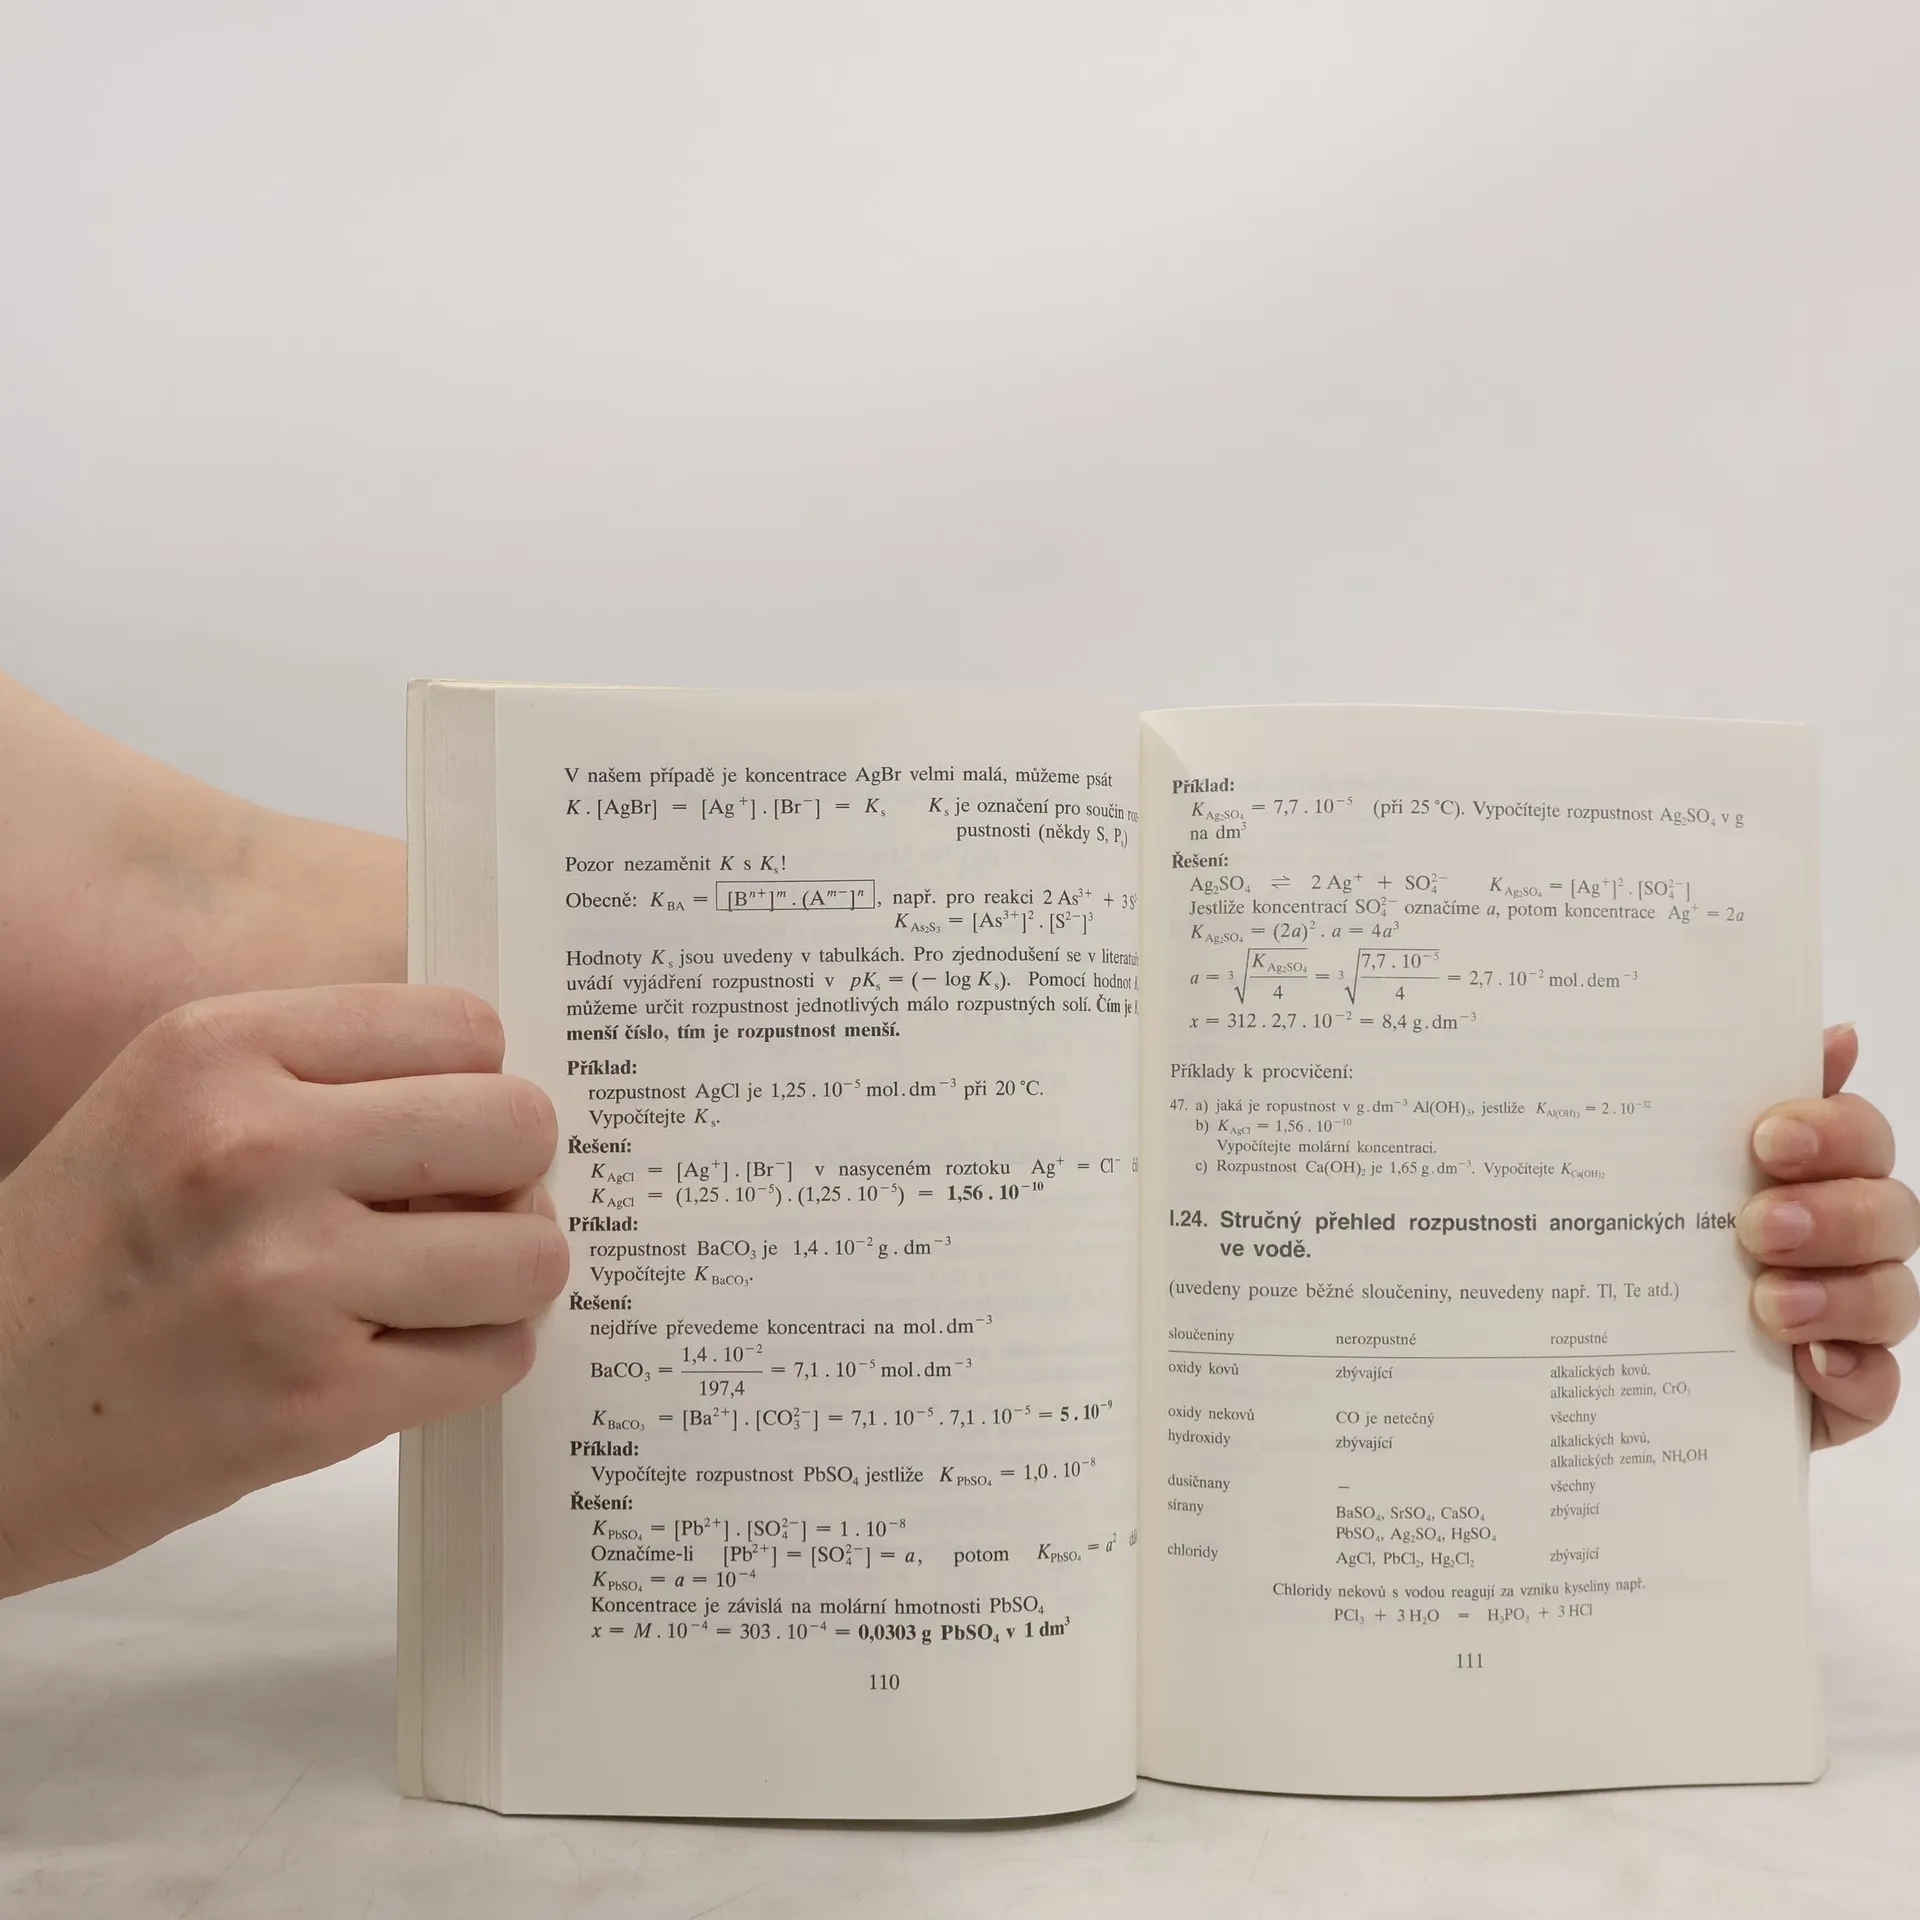 V našem případě je koncentrace AgBr velmi malá, můžeme psát
K . [AgBr] = [Ag⁺] . [Br⁻] = Kₛ Kₛ je označení pro součin roz-
pustnosti (někdy S, Pₛ)
Pozor nezaměnit K s Kₛ!
Obecně: K_BA = [Bⁿ⁺]ᵐ . (Aᵐ⁻]ⁿ, např. pro reakci 2 As³⁺ + 3S²⁻
K_As₂S₃ = [As³⁺]² . [S²⁻]³
Hodnoty Kₛ jsou uvedeny v tabulkách. Pro zjednodušení se v
uvádí vyjádření rozpustnosti v pKₛ = (− log Kₛ). Pomocí hodnot
můžeme určit rozpustnost jednotlivých málo rozpustných solí. Čím je
menší číslo, tím je rozpustnost menší.
Příklad:
rozpustnost AgCl je 1,25 . 10⁻⁵ mol.dm⁻³ při 20 °C.
Vypočítejte Kₛ.
Řešení:
K_AgCl = [Ag⁺] . [Br⁻] v nasyceném roztoku Ag⁺ = Cl⁻
K_AgCl = (1,25 . 10⁻⁵) . (1,25 . 10⁻⁵) = 1,56 . 10⁻¹⁰
Příklad:
rozpustnost BaCO₃ je 1,4 . 10⁻² g . dm⁻³
Vypočítejte K_BaCO₃.
Řešení:
nejdříve převedeme koncentraci na mol.dm⁻³
BaCO₃ = 1,4 . 10⁻² / 197,4 = 7,1 . 10⁻⁵ mol.dm⁻³
K_BaCO₃ = [Ba²⁺] . [CO₃²⁻] = 7,1 . 10⁻⁵ . 7,1 . 10⁻⁵ = 5 . 10⁻⁹
Příklad:
Vypočítejte rozpustnost PbSO₄ jestliže K_PbSO₄ = 1,0 . 10⁻⁸
Řešení:
K_PbSO₄ = [Pb²⁺] . [SO₄²⁻] = 1 . 10⁻⁸
Označíme-li [Pb²⁺] = [SO₄²⁻] = a, potom K_PbSO₄ = a²
K_PbSO₄ = a = 10⁻⁴
Koncentrace je závislá na molární hmotnosti PbSO₄
x = M . 10⁻⁴ = 303 . 10⁻⁴ = 0,0303 g PbSO₄ v 1 dm³
110
Příklad:
K_Ag₂SO₄ = 7,7 . 10⁻⁵ (při 25 °C). Vypočítejte rozpustnost Ag₂SO₄ v g
na dm³
Řešení:
Ag₂SO₄ ⇌ 2 Ag⁺ + SO₄²⁻ K_Ag₂SO₄ = [Ag⁺]² . [SO₄²⁻]
Jestliže koncentrací SO₄²⁻ označíme a, potom koncentrace Ag⁺ = 2a
K_Ag₂SO₄ = (2a)² . a = 4a³
a = ³√(K_Ag₂SO₄ / 4) = ³√(7,7 . 10⁻⁵ / 4) = 2,7 . 10⁻² mol.dem⁻³
x = 312 . 2,7 . 10⁻² = 8,4 g.dm⁻³
Příklady k procvičení:
47. a) jaká je ropustnost v g.dm⁻³ Al(OH)₃, jestliže K_Al(OH)₃ = 2 . 10⁻³²
b) K_AgCl = 1,56 . 10⁻¹⁰
Vypočítejte molární koncentraci.
c) Rozpustnost Ca(OH)₂ je 1,65 g.dm⁻³. Vypočítejte K_Ca(OH)₂
I.24. Stručný přehled rozpustnosti anorganických látek
ve vodě.
(uvedeny pouze běžné sloučeniny, neuvedeny např. Tl, Te atd.)
sloučeniny nerozpustné rozpustné
oxidy kovů zbývající alkalických kovů,
alkalických zemin, CrO₃
oxidy nekovů CO je netečný všechny
hydroxidy zbývající alkalických kovů,
alkalických zemin, NH₄OH
dusičnany – všechny
sírany BaSO₄, SrSO₄, CaSO₄ zbývající
PbSO₄, Ag₂SO₄, HgSO₄
chloridy AgCl, PbCl₂, Hg₂Cl₂ zbývající
Chloridy nekovů s vodou reagují za vzniku kyseliny např.
PCl₃ + 3 H₂O = H₃PO₃ + 3 HCl
111